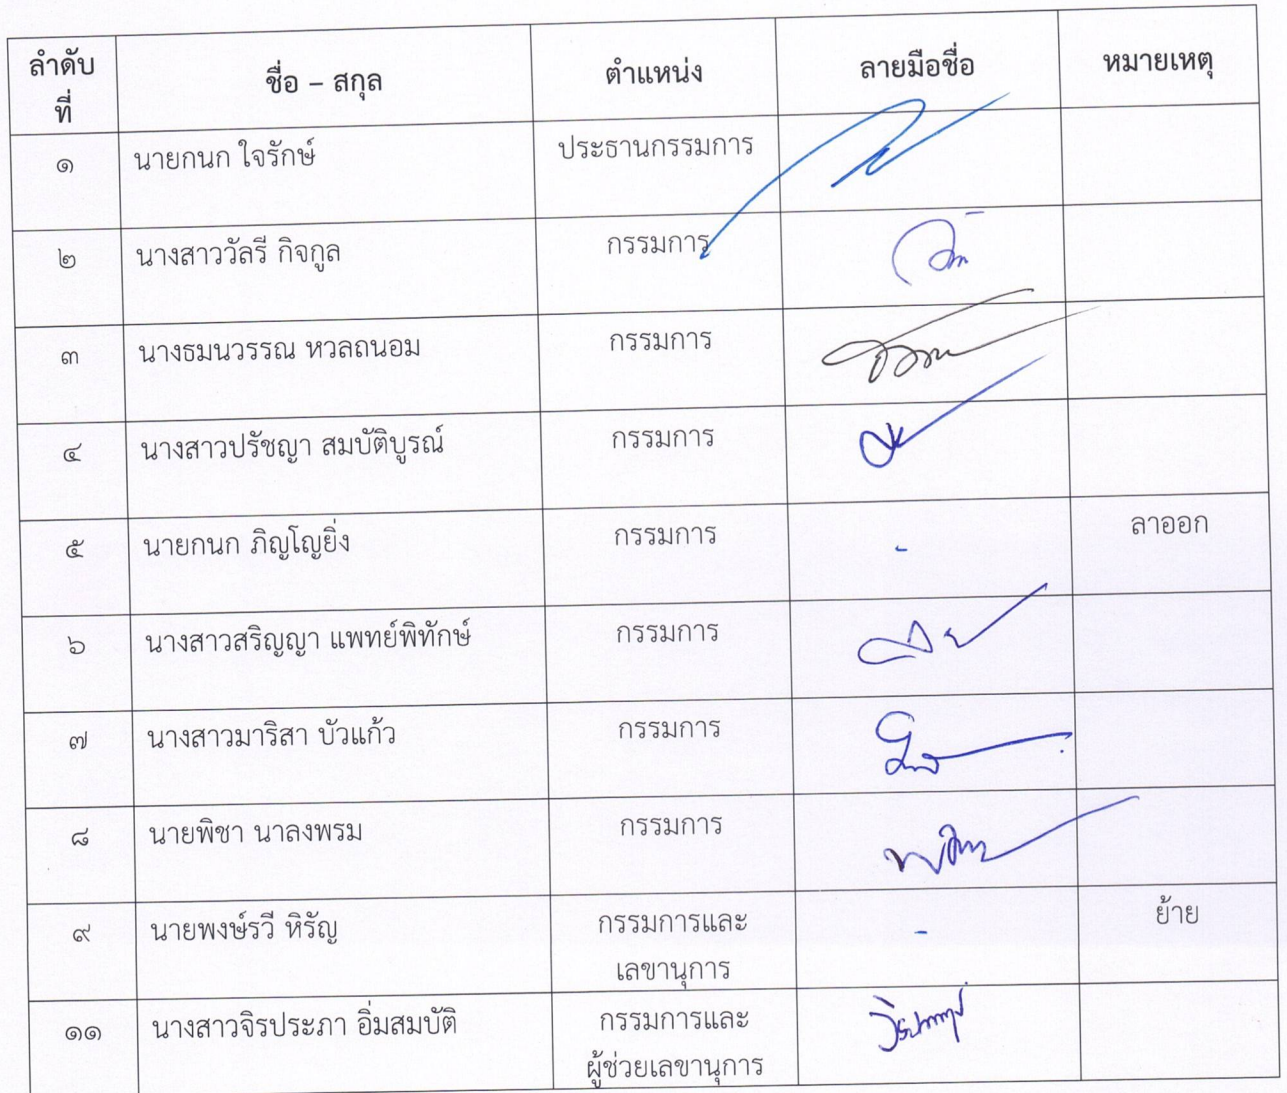 ลำดับ
ที่
ชื่อ – สกุล
ตำแหน่ง
ลายมือชื่อ
หมายเหตุ
๑ นายกนก ใจรักษ์ ประธานกรรมการ
๒ นางสาววัลรี กิจกูล กรรมการ
๓ นางธมนวรรณ หวลถนอม กรรมการ
๔ นางสาวปรัชญา สมบัติบูรณ์ กรรมการ
๕ นายกนก ภิญโญยิ่ง กรรมการ - ลาออก
๖ นางสาวสริญญา แพทย์พิทักษ์ กรรมการ
๗ นางสาวมาริสา บัวแก้ว กรรมการ
๘ นายพิชา นาลงพรม กรรมการ
๙ นายพงษ์รวี หิรัญ กรรมการและ - ย้าย
เลขานุการ
๑๑ นางสาวจิรประภา อิ่มสมบัติ กรรมการและ
ผู้ช่วยเลขานุการ